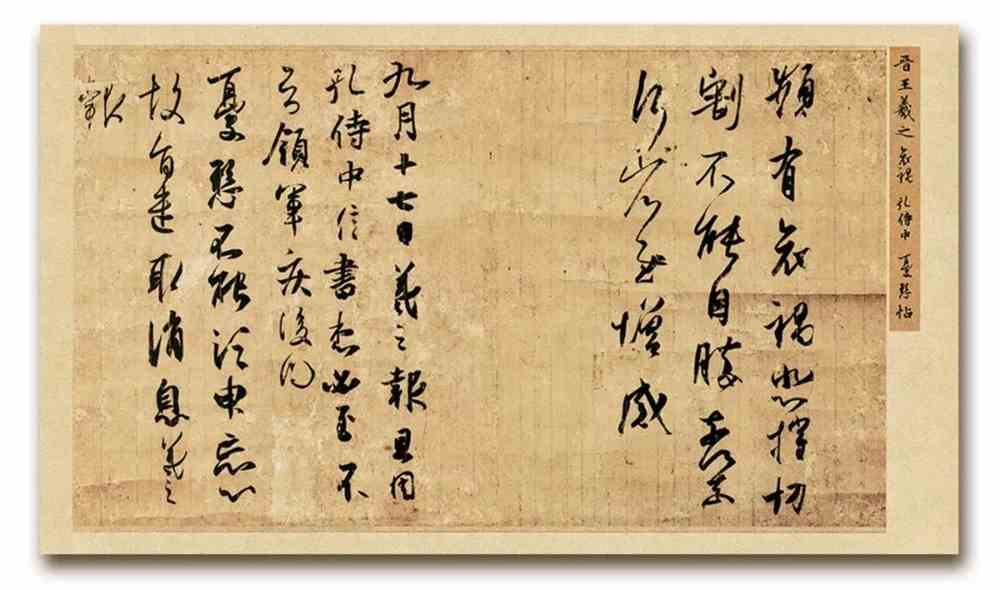 晋王羲之 哀禍 孔侍中 憂懸帖
頻有哀禍悲摧切
割不能自勝奈何
奈何省慰增感
九月十七日羲之報且因
孔侍中信書想必至不
知領軍疾後問
憂懸不能須臾忘心
故旨遣取消息羲之
報